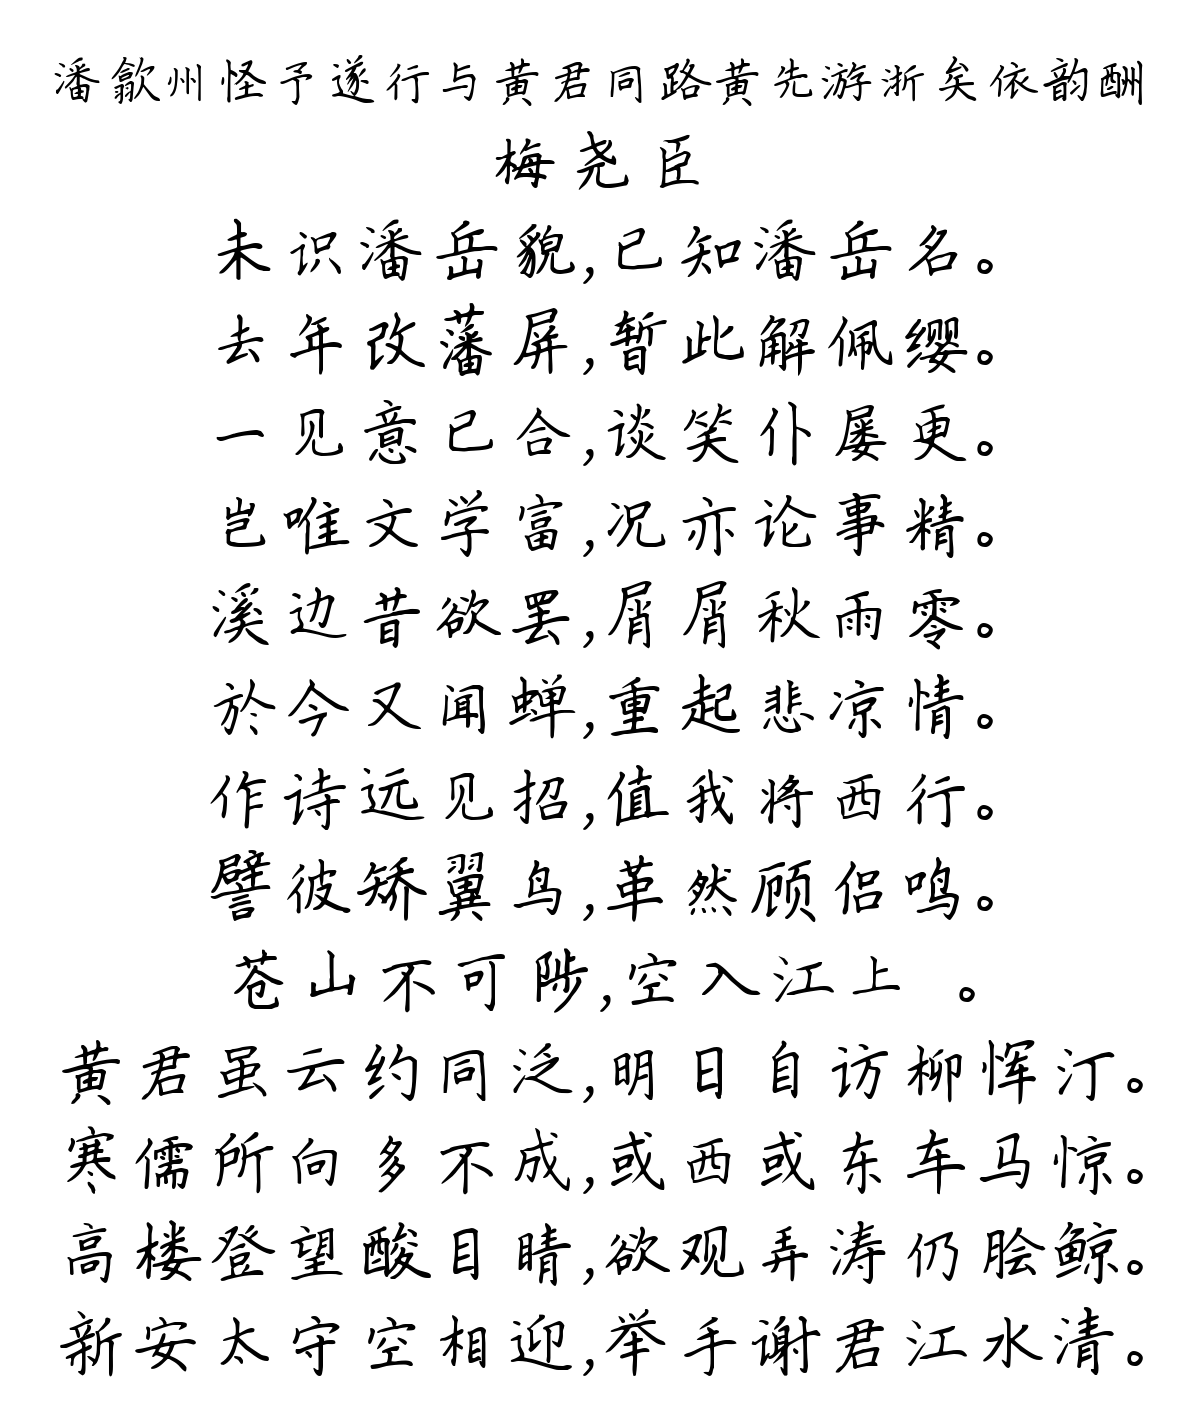 潘歙州怪予遂行与黄君同路黄先游浙矣依韵酬
梅尧臣
未识潘岳貌,已知潘岳名。
去年改藩屏,暂此解佩缨。
一见意已合,谈笑仆屡更。
岂唯文学富,况亦论事精。
溪边昔欲罢,屑屑秋雨零。
於今又闻蝉,重起悲凉情。
作诗远见招,值我将西行。
譬彼矫翼鸟,革然顾侣鸣。
苍山不可陟,空入江上 。
黄君虽云约同泛,明日自访柳恽汀。
寒儒所向多不成,或西或东车马惊。
高楼登望酸目睛,欲观弄涛仍脍鲸。
新安太守空相迎,举手谢君江水清。